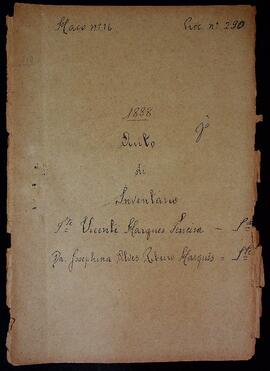 Maço nº 16 Proc. nº 290
1888
Auto
de
Inventario
Vicente Marques Ferreira
Dn. Josephina Alves Ribeiro Marques